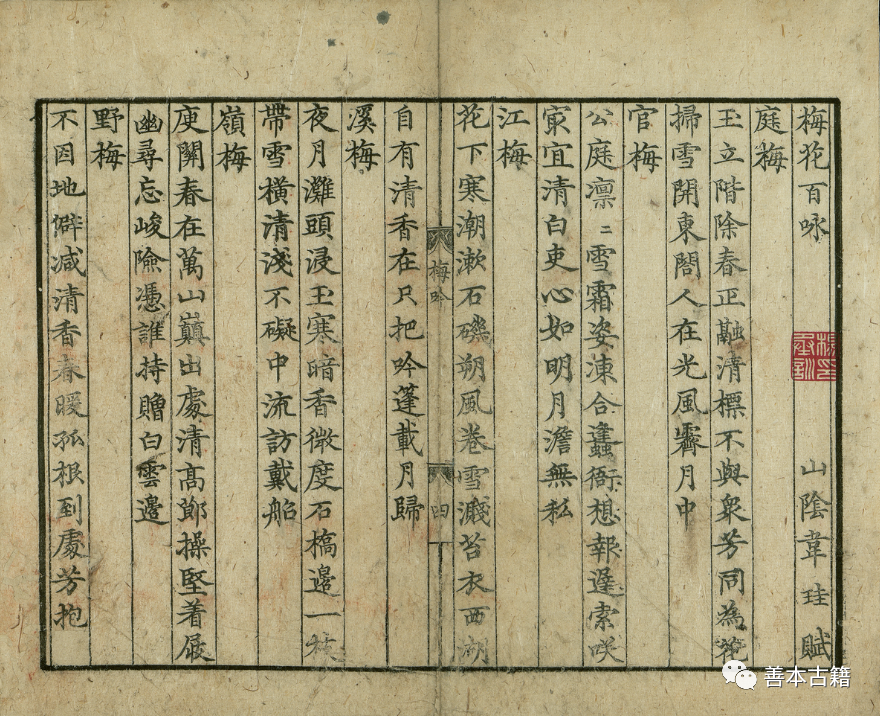 梅花百咏　山陰韋珪賦
庭梅
玉立階除春正融清標不與衆芳同為
掃雪開東閣人在光風霽月中
官梅
公庭凛〻雪霜姿凍合蠭衙想報遲索咲
㝡宜清白吏心如明月澹無私
江梅
花下寒潮漱石磯朔風卷雪濺苔衣西湖
自有清香在只把吟蓬載月歸
梅吟 四
溪梅
夜月灘頭浸玉寒暗香微度石橋邊一枝
帶雪橫清淺不礙中流訪戴船
嶺梅
庾關春在萬山巔出處清高節操堅着屐
幽尋忘峻險憑誰持贈白雲邊
野梅
不因地僻减清香春暖孤根到處芳抱
善本古籍